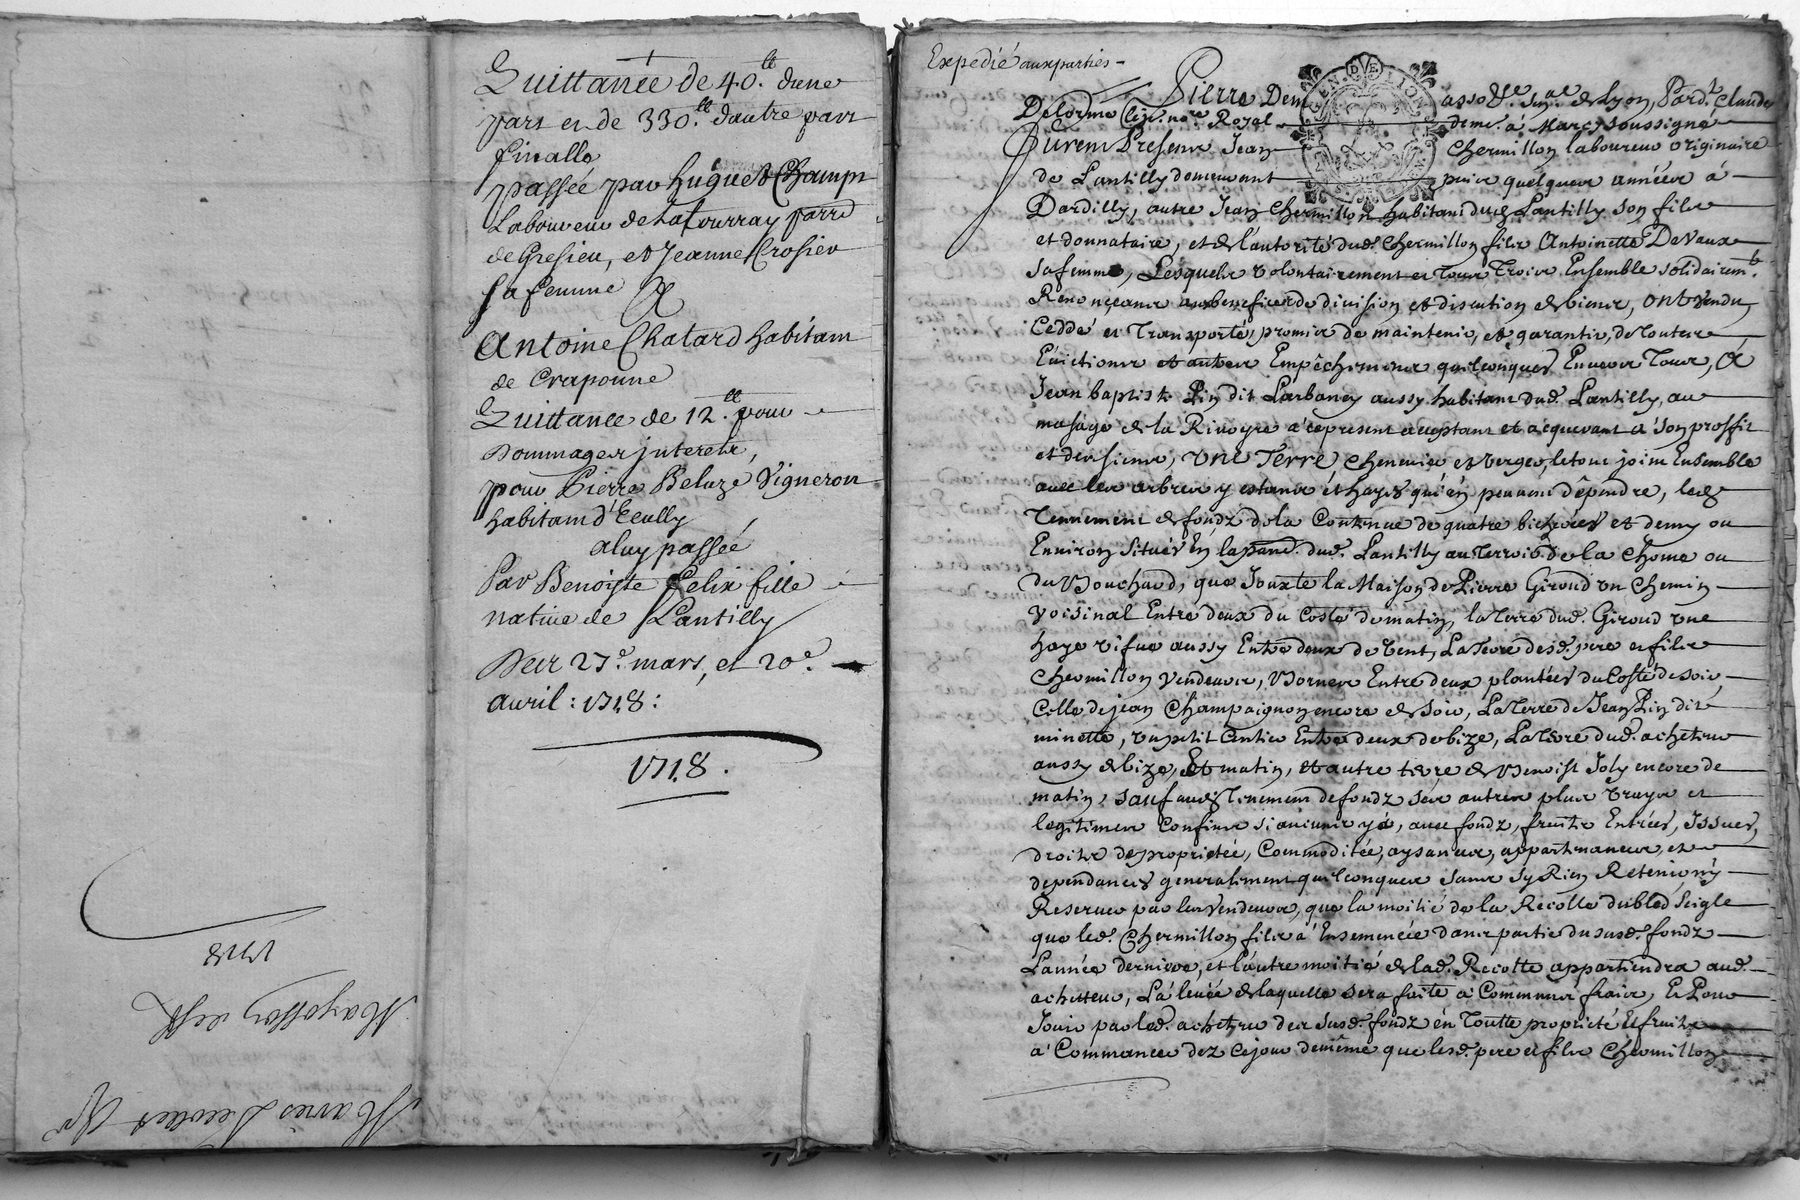 Quittance de 40.tt dune
part et de 330.tt dautre part
finalle
passée par hugues Champt
Laboureur de paroisse
de Gresieu, et Jeanne Crosier
sa femme A
Antoine Chatard habitant
de Craponne
Quittance de 12.tt pour
Dommages interetz,
pour Pierre Beluze Vigneron
habitant d'Ecully
a luy passée
Par Benoiste Felix fille
native de Lantilly
Des 27e mars, et 20e
avril : 1718 :
1718.
1718
Expedié aux parties
Pardt Claude
Delorme nore Royal deme. à Marcy soussigné
Furent Presents Jean Chermillon laboureur originaire
de Lantilly demeurant puis quelques années à
Dardilly, autre Jean Chermillon habitant dud. Lantilly son filz
et donnataire, et de l'autorité dud. Chermillon filz Antoinette Devaux
sa femme, Lesquelz volontairement et tous Trois Ensemble solidairemt.
Renonceant aux benefices de division et discution de biens, ont vendu
Ceddé et Transporté, promis de maintenir, et garantir, de toutes
Evictions et autres Empêchemens quelconques Envers Tous, A
Jean baptiste Pin dit Larbaney aussy habitant dud. Lantilly, au
masage de la Rivoyre à ce present acceptant et acquerant à son proffit
et des siens, une Terre, cheneviere et verger, le tout joint Ensemble
avec les arbres y estans et hayes qui en peuvent dépendre, led.
Tennement de fondz de la Contenue de quatre bicherées et demy ou
Environ situés En la parr. dud. Lantilly au Terroir de la Chome ou
du Bouchard, que Jouxte la Maison de Pierre Giroud un Chemin
voisinal Entre deux du Costé de matin, la terre dud. Giroud une
haye vifve aussy Entre deux de vent, La terre desd. pere et filz
Chermillon vendeurs, Bornes Entre deux plantées du Costé de soir,
Celle de jean Champaignon encore de soir, La terre de Jean Pin dit
minette, un petit Centier Entre deux de bize, La terre dud. achepteur
aussy de bize, Et matin, et autre terre de Benoist Joly encore de
matin, sauf aud. Tenement de fondz ses autres plus vrays et
legitimes Confins si aucuns y a, avec fondz, fruits Entrées, Issues,
droits de proprietée, Commoditée, aysances, appartenances, et
dependances generalement quelconques sans sy Rien Retenir ny
Reserver par les vendeurs, que la moitié de la Recolte du bled seigle
que led. Chermillon filz a Ensemencée dans partie du susd. fondz
L'année derniere, et l'autre moitié de lad. Recolte appartiendra aud.
achetteur, La levée de laquelle sera faite à Communs fraix, Et Pour
Jouir par led. achepteur des susd. fondz en Toutte proprieté Et fruits
à Commancer dez ce jour de même que lesd. pere et filz Chermillon